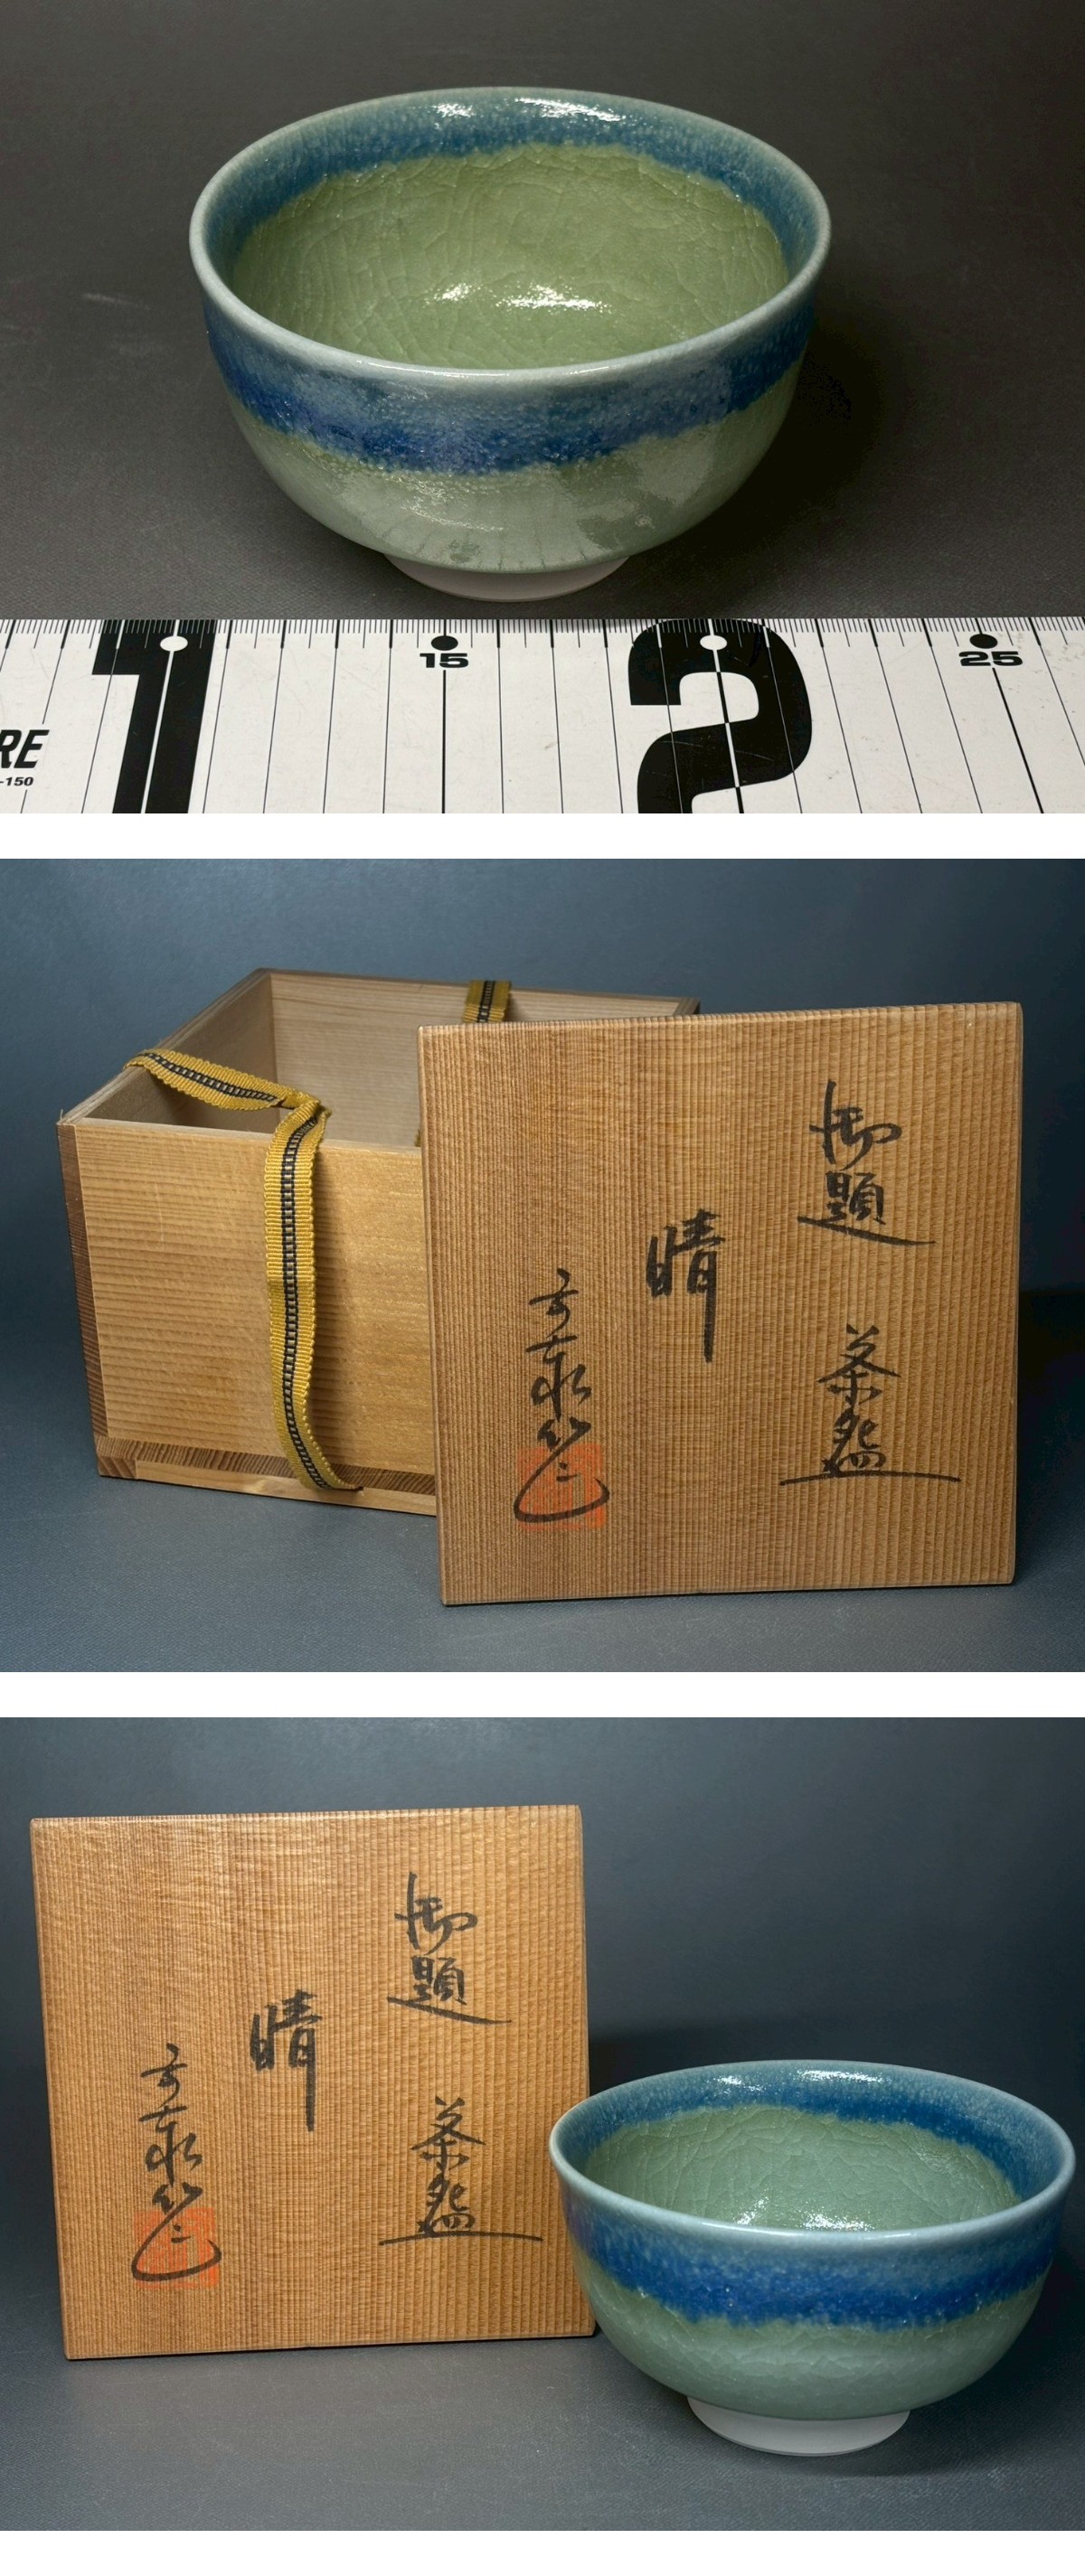 1
15
2
25
RE
-150
御題 茶盌
晴
御題 茶盌
晴